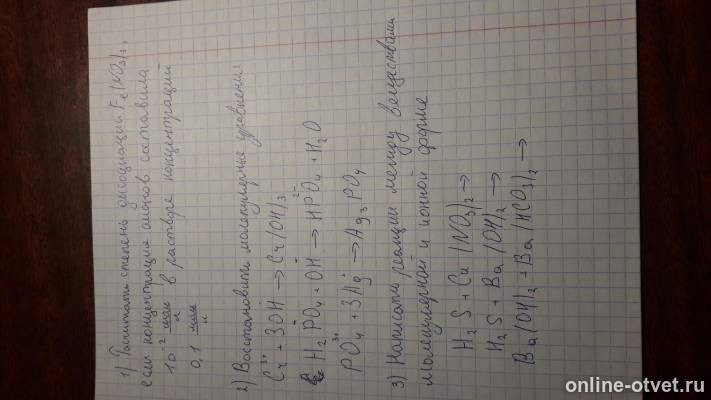 1) Расчитать степень дисоциации Fe(NO3)2,
если концентрация анионов составила
10⁻² моль/л в растворе концентрацией
0,1 моль/л
2) Восстановить молекулярные уравнения:
Cr³⁺ + 3OH⁻ → Cr(OH)3
H2PO4⁻ + OH⁻ → HPO4²⁻ + H2O
PO4³⁺ + 3Ag⁺ → Ag3PO4
3) Написать реакции между веществами
молекулярной и ионной форме
H2S + Cu(NO3)2 →
H2S + Ba(OH)2 →
Ba(OH)2 + Ba(HCO3)2 →
online-otvet.ru